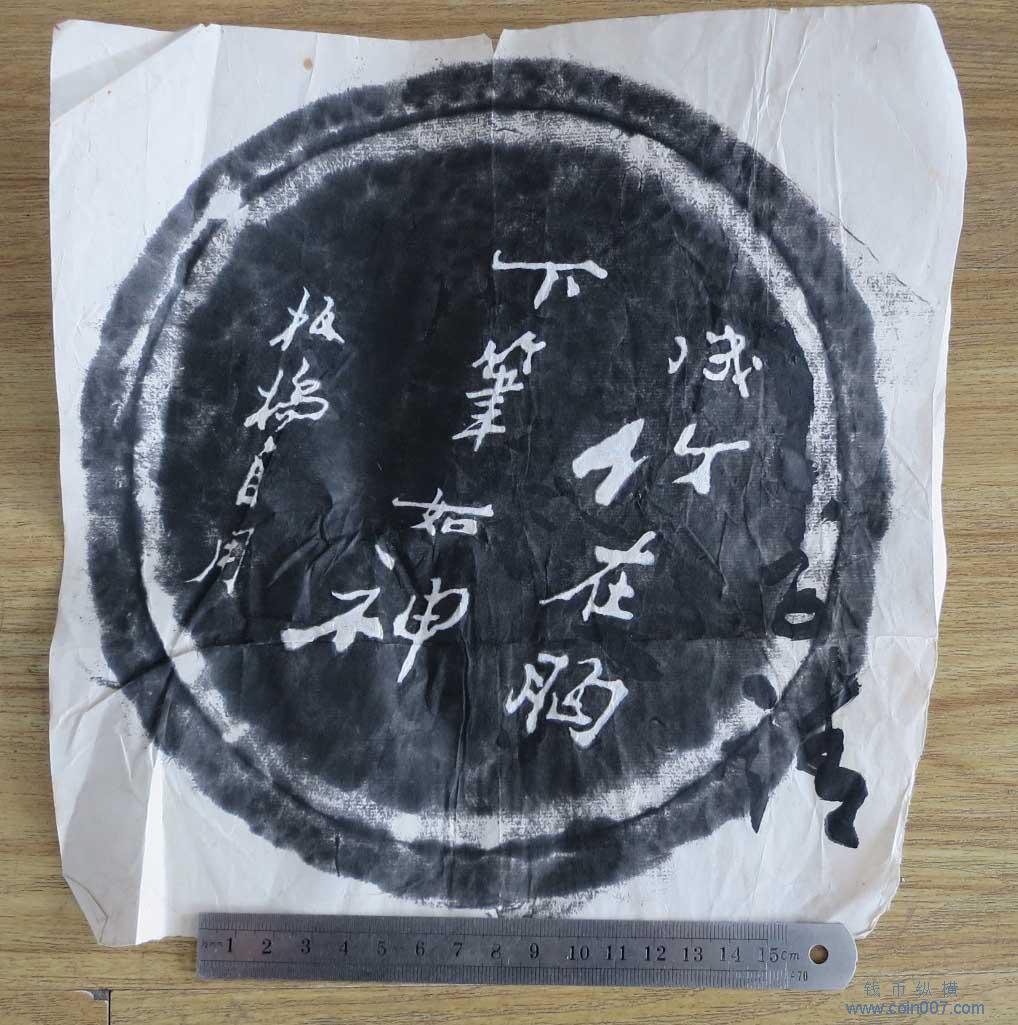 成竹在胸
下筆如神
板橋自用
1 2 3 4 5 6 7 8 9 10 11 12 13 14 15cm
钱币纵横
www.coin007.com